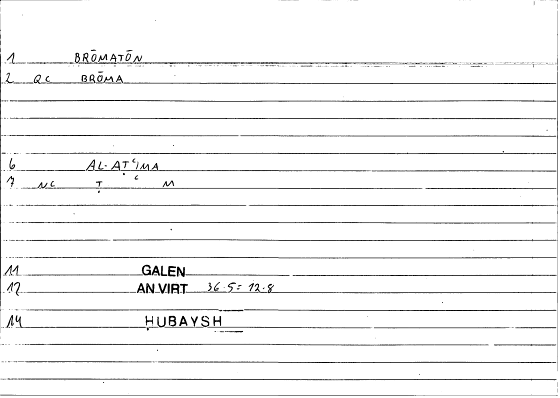 1 BRŌMATŌN
2 QC BRŌMA
6 AL-AṬʿIMA
7 NC Ṭ ʿ M
11 GALEN
12 AN VIRT 36.5 = 12.8
14 ḤUBAYSH